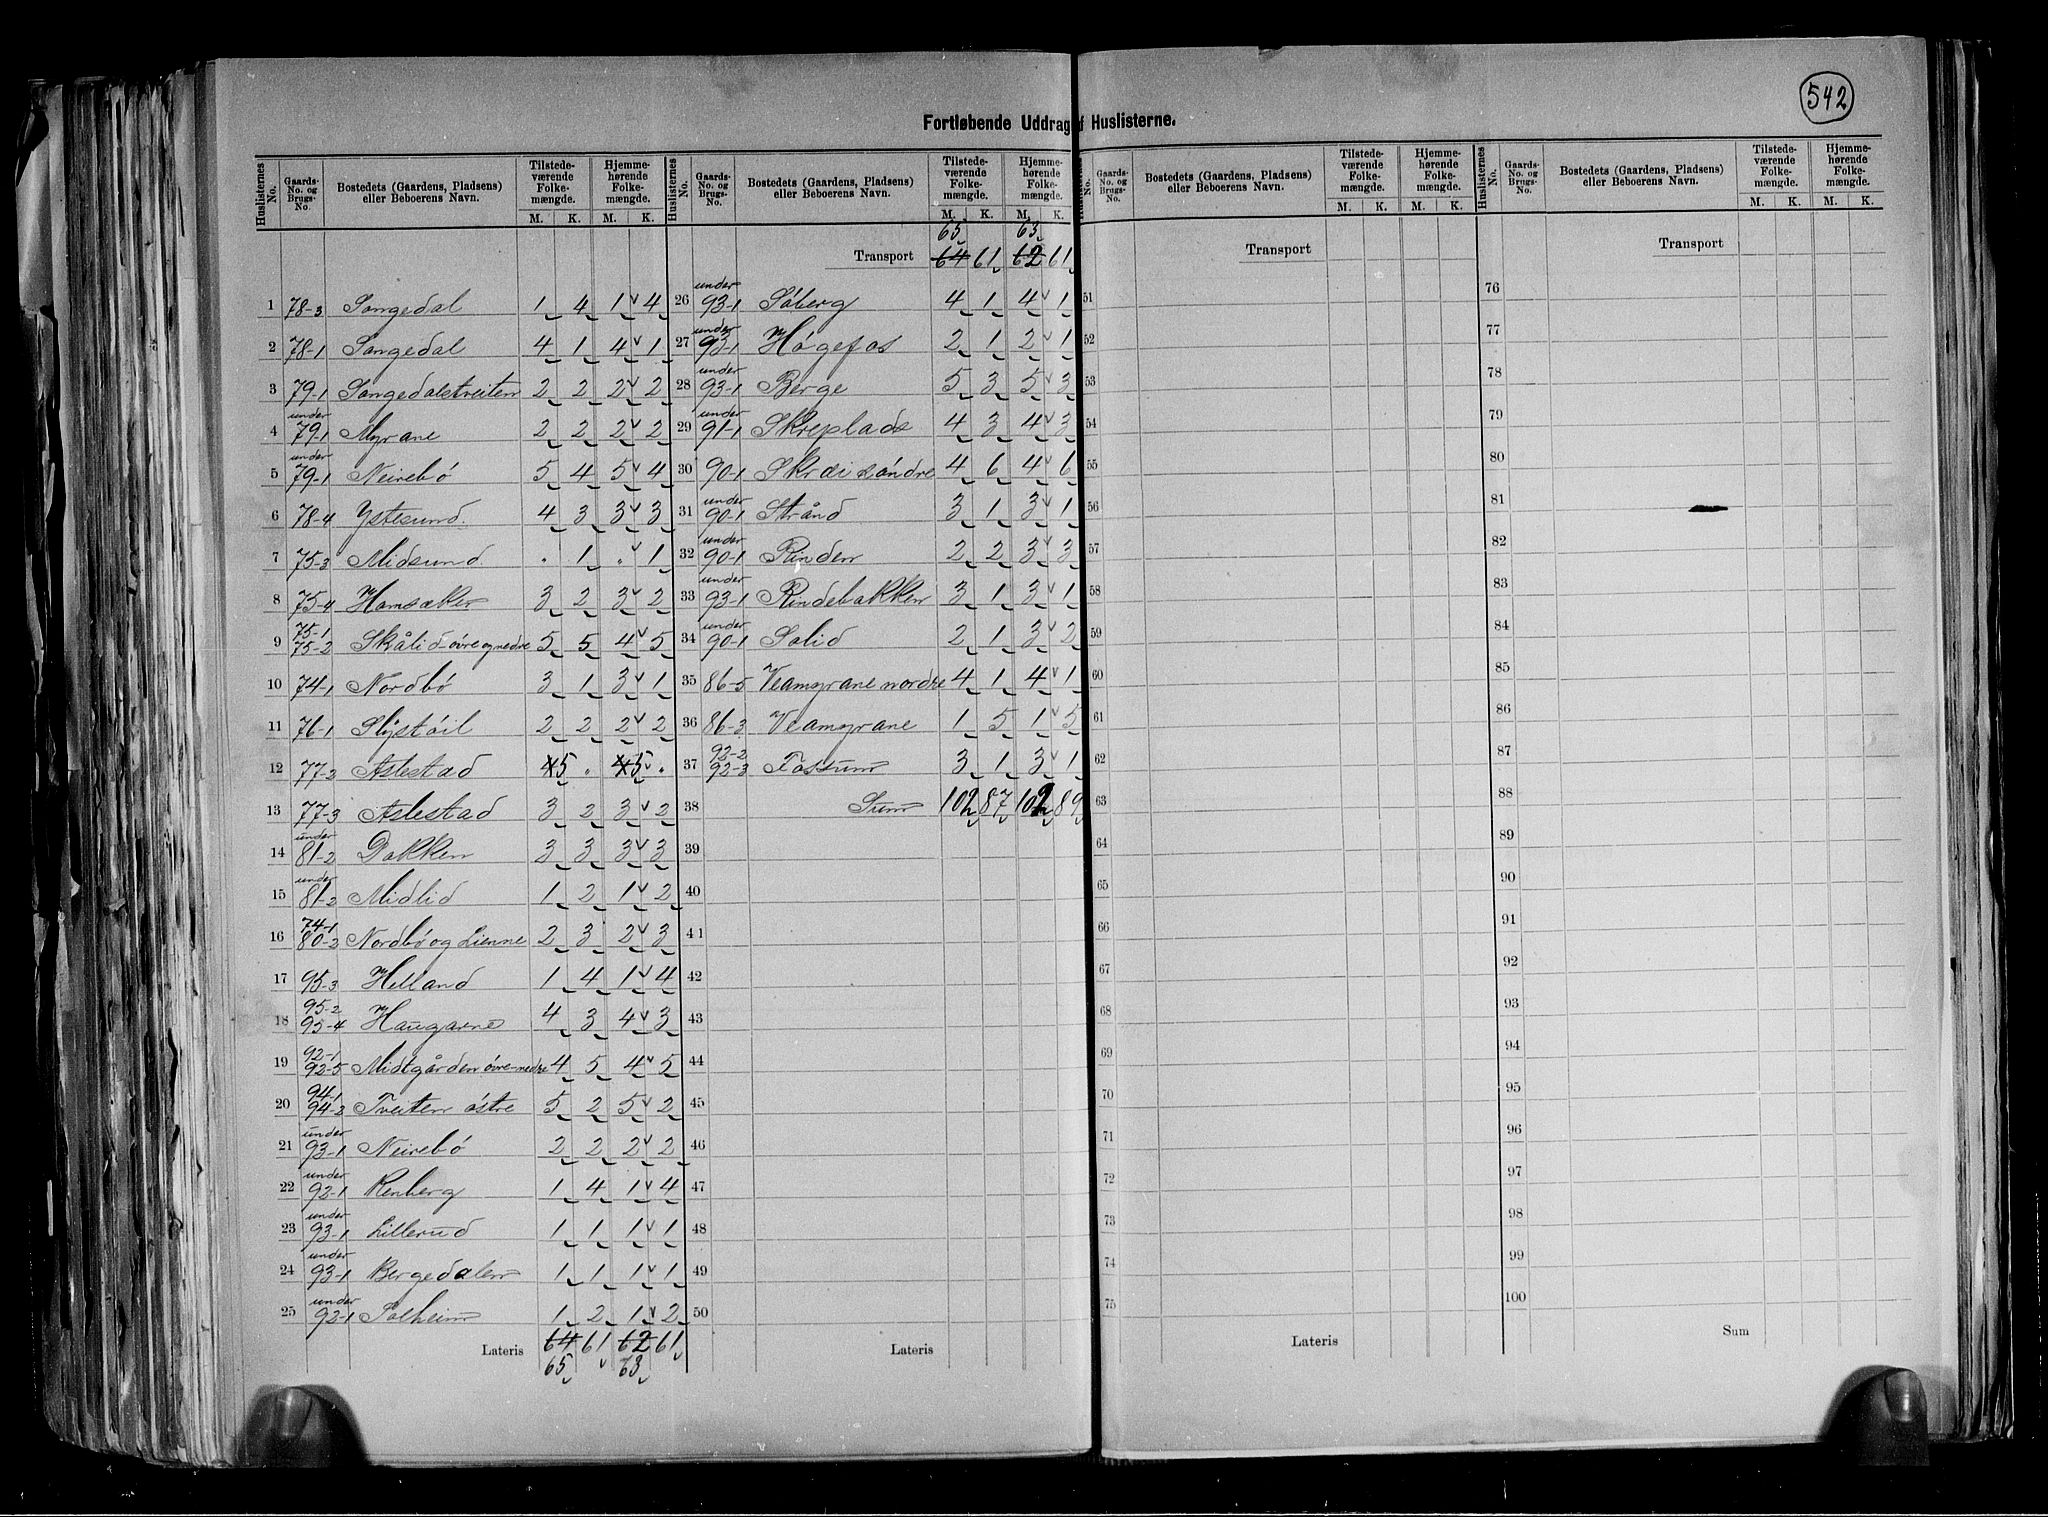 542
Fortløbende Uddrag af Huslisterne.
Huslisternes No. Gaards-No. og Brugs-No. Bostedets (Gaardens, Pladsens) eller Beboerens Navn. Tilstedeværende Folkemængde. M. K. Hjemmehørende Folkemængde. M. K.
1 78-3 Songedal 1 4 1 4
2 78-1 Songedal 4 1 4 1
3 79-1 Songedalstveiten 2 2 2 2
4 under 79-1 Myrane 2 2 2 2
5 under 79-1 Neirebø 5 4 5 4
6 78-4 Ystesund. 4 3 3 3
7 75-3 Midsund " 1 " 1
8 75-4 Homsæker 3 2 3 2
9 75-1 75-2 Skålid-øvre og nedre 5 5 4 5
10 74-1 Nordbø 3 1 3 1
11 76-1 Slystøil 2 2 2 2
12 77-2 Aslestad 4 5 " 4 5 "
13 77-3 Aslestad 3 2 3 2
14 under 81-2 Dokken 3 3 3 3
15 under 81-2 Midlid 1 2 1 2
16 74-1 80-2 Nordbø og Lienne 2 3 2 3
17 95-3 Helland 1 4 1 4
18 95-2 95-4 Haugarne 4 3 4 3
19 92-1 92-5 Midtgården øvre-nedre 4 5 4 5
20 94-1 94-2 Tveiten østre 5 2 5 2
21 under 93-1 Neirebø 2 2 2 2
22 under 92-1 Renberg 1 4 1 4
23 under 93-1 Lillerud 1 1 1 1
24 under 93-1 Bergedalen 1 1 1 1
25 under 92-1 Solheim 1 2 1 2
Lateris 64 61 62 61
65 63
Huslisternes No. Gaards-No. og Brugs-No. Bostedets (Gaardens, Pladsens) eller Beboerens Navn. Tilstedeværende Folkemængde. M. K. Hjemmehørende Folkemængde. M. K.
65 63
Transport 64 61 62 61
26 under 93-1 Søberg 4 1 4 1
27 under 93-1 Høgefos 2 1 2 1
28 under 93-1 Berge 5 3 5 3
29 under 91-1 Skreplads 4 3 4 3
30 90-1 Skræi søndre 4 6 4 6
31 under 90-1 Strånd 3 1 3 1
32 under 90-1 Rinden 2 2 3 3
33 under 93-1 Rindebakken 3 1 3 1
34 under 90-1 Solid 2 1 3 2
35 86-5 Veamyrane nordre 4 1 4 1
36 86-3 Veamyrane 1 5 1 5
37 92-2 92-3 Fossum 3 1 3 1
38 Sum 102 87 102 89
39
40
41
42
43
44
45
46
47
48
49
50
Lateris
Huslisternes No. Gaards-No. og Brugs-No. Bostedets (Gaardens, Pladsens) eller Beboerens Navn. Tilstedeværende Folkemængde. M. K. Hjemmehørende Folkemængde. M. K.
Transport
51
52
53
54
55
56
57
58
59
60
61
62
63
64
65
66
67
68
69
70
71
72
73
74
75
Lateris
Huslisternes No. Gaards-No. og Brugs-No. Bostedets (Gaardens, Pladsens) eller Beboerens Navn. Tilstedeværende Folkemængde. M. K. Hjemmehørende Folkemængde. M. K.
Transport
76
77
78
79
80
81
82
83
84
85
86
87
88
89
90
91
92
93
94
95
96
97
98
99
100
Sum